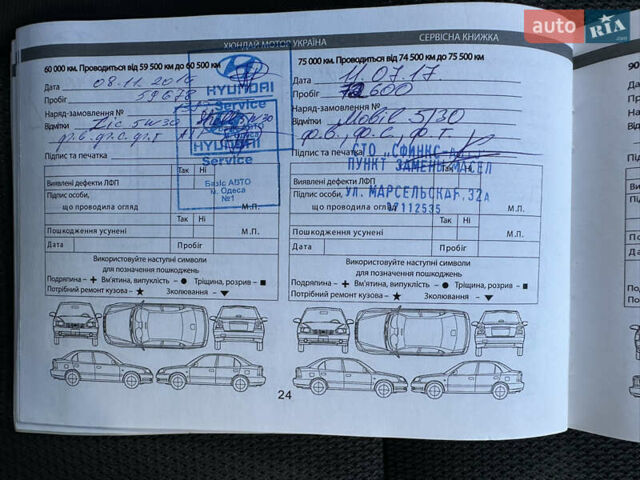 auto RIA.com
ХЮНДАЙ МОТОР УКРАЇНА
СЕРВІСНА КНИЖКА
60 000 км. Проводиться від 59 500 км до 60 500 км
Дата 08.11.2016
Пробіг 59678
Наряд-замовлення №
Відмітки Zic 5w30
ф.в. ф.с. ф.т
Підпис та печатка
HYUNDAI
Service
HYUNDAI
Service
Базіс АВТО
м. Одеса
№1
Так Ні
Виявлені дефекти ЛФП
Підпис особи,
що проводила огляд М.П.
Так Ні
Пошкодження усунені М.П.
Дата Пробіг
Використовуйте наступні символи
для позначення пошкоджень
Подряпина - + Вм'ятина, випуклість - ● Тріщина, розрив - ■
Потрібний ремонт кузова - ★ Зколювання - ▼
75 000 км. Проводиться від 74 500 км до 75 500 км
Дата 11.07.17
Пробіг 72600
Наряд-замовлення №
Відмітки Mobil 5/30
ф.в., ф.с, ф.т.
Підпис та печатка
СТО "СФИНКС
ПУНКТ ЗАМЕНЫ МАСЕЛ
УЛ. МАРСЕЛЬСКАЯ, 32А
Так Ні
Виявлені дефекти ЛФП
Підпис особи,
що проводила огляд М.П.
Так Ні
Пошкодження усунені М.П.
Дата Пробіг
Використовуйте наступні символи
для позначення пошкоджень
Подряпина - + Вм'ятина, випуклість - ● Тріщина, розрив - ■
Потрібний ремонт кузова - ★ Зколювання - ▼
24
90
Дата
Проб
Наря
Відм
Підп
Вия
Під
По
Да
По
Пот